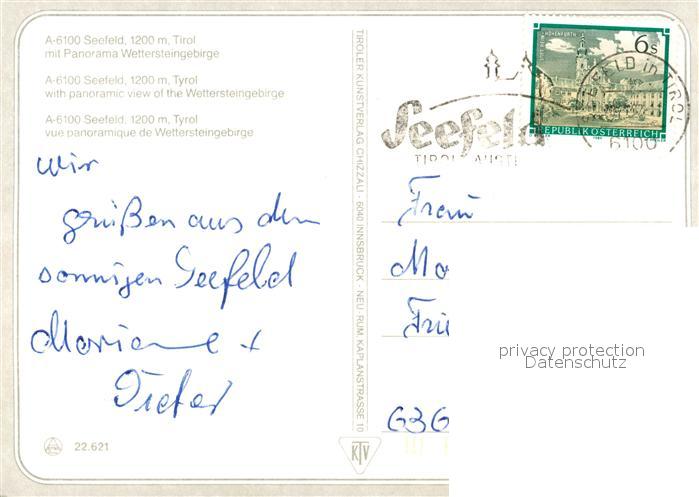 A-6100 Seefeld, 1200 m, Tirol
mit Panorama Wettersteingebirge
A-6100 Seefeld, 1200 m, Tyrol
with panoramic view of the Wettersteingebirge
A-6100 Seefeld, 1200 m, Tyrol
vue panoramique de Wettersteingebirge
wir
grüßen aus dem
sonnigen Seefeld
Marianne +
Dieter
22.621
TIROLER KUNSTVERLAG CHIZZALI · 6040 INNSBRUCK - NEU RUM KAPLANSTRASSE 10
KTV
6 S
STIFT REIN-HOHENFURTH
REPUBLIK ÖSTERREICH
Seefeld
TIROL AUST
SEEFELD in TIROL
6100
Frau
Ma
Frie
636
privacy protection
Datenschutz